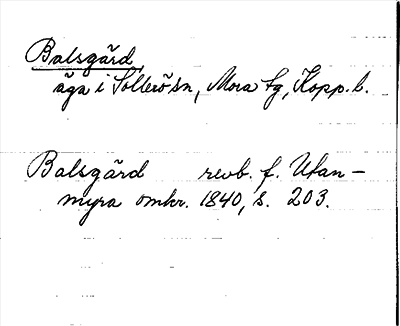 Balsgård
äga i Sollerö sn, Mora tg, Kopp. l.
Balsgård revb. f. Utan-
myra omkr. 1840, s. 203.